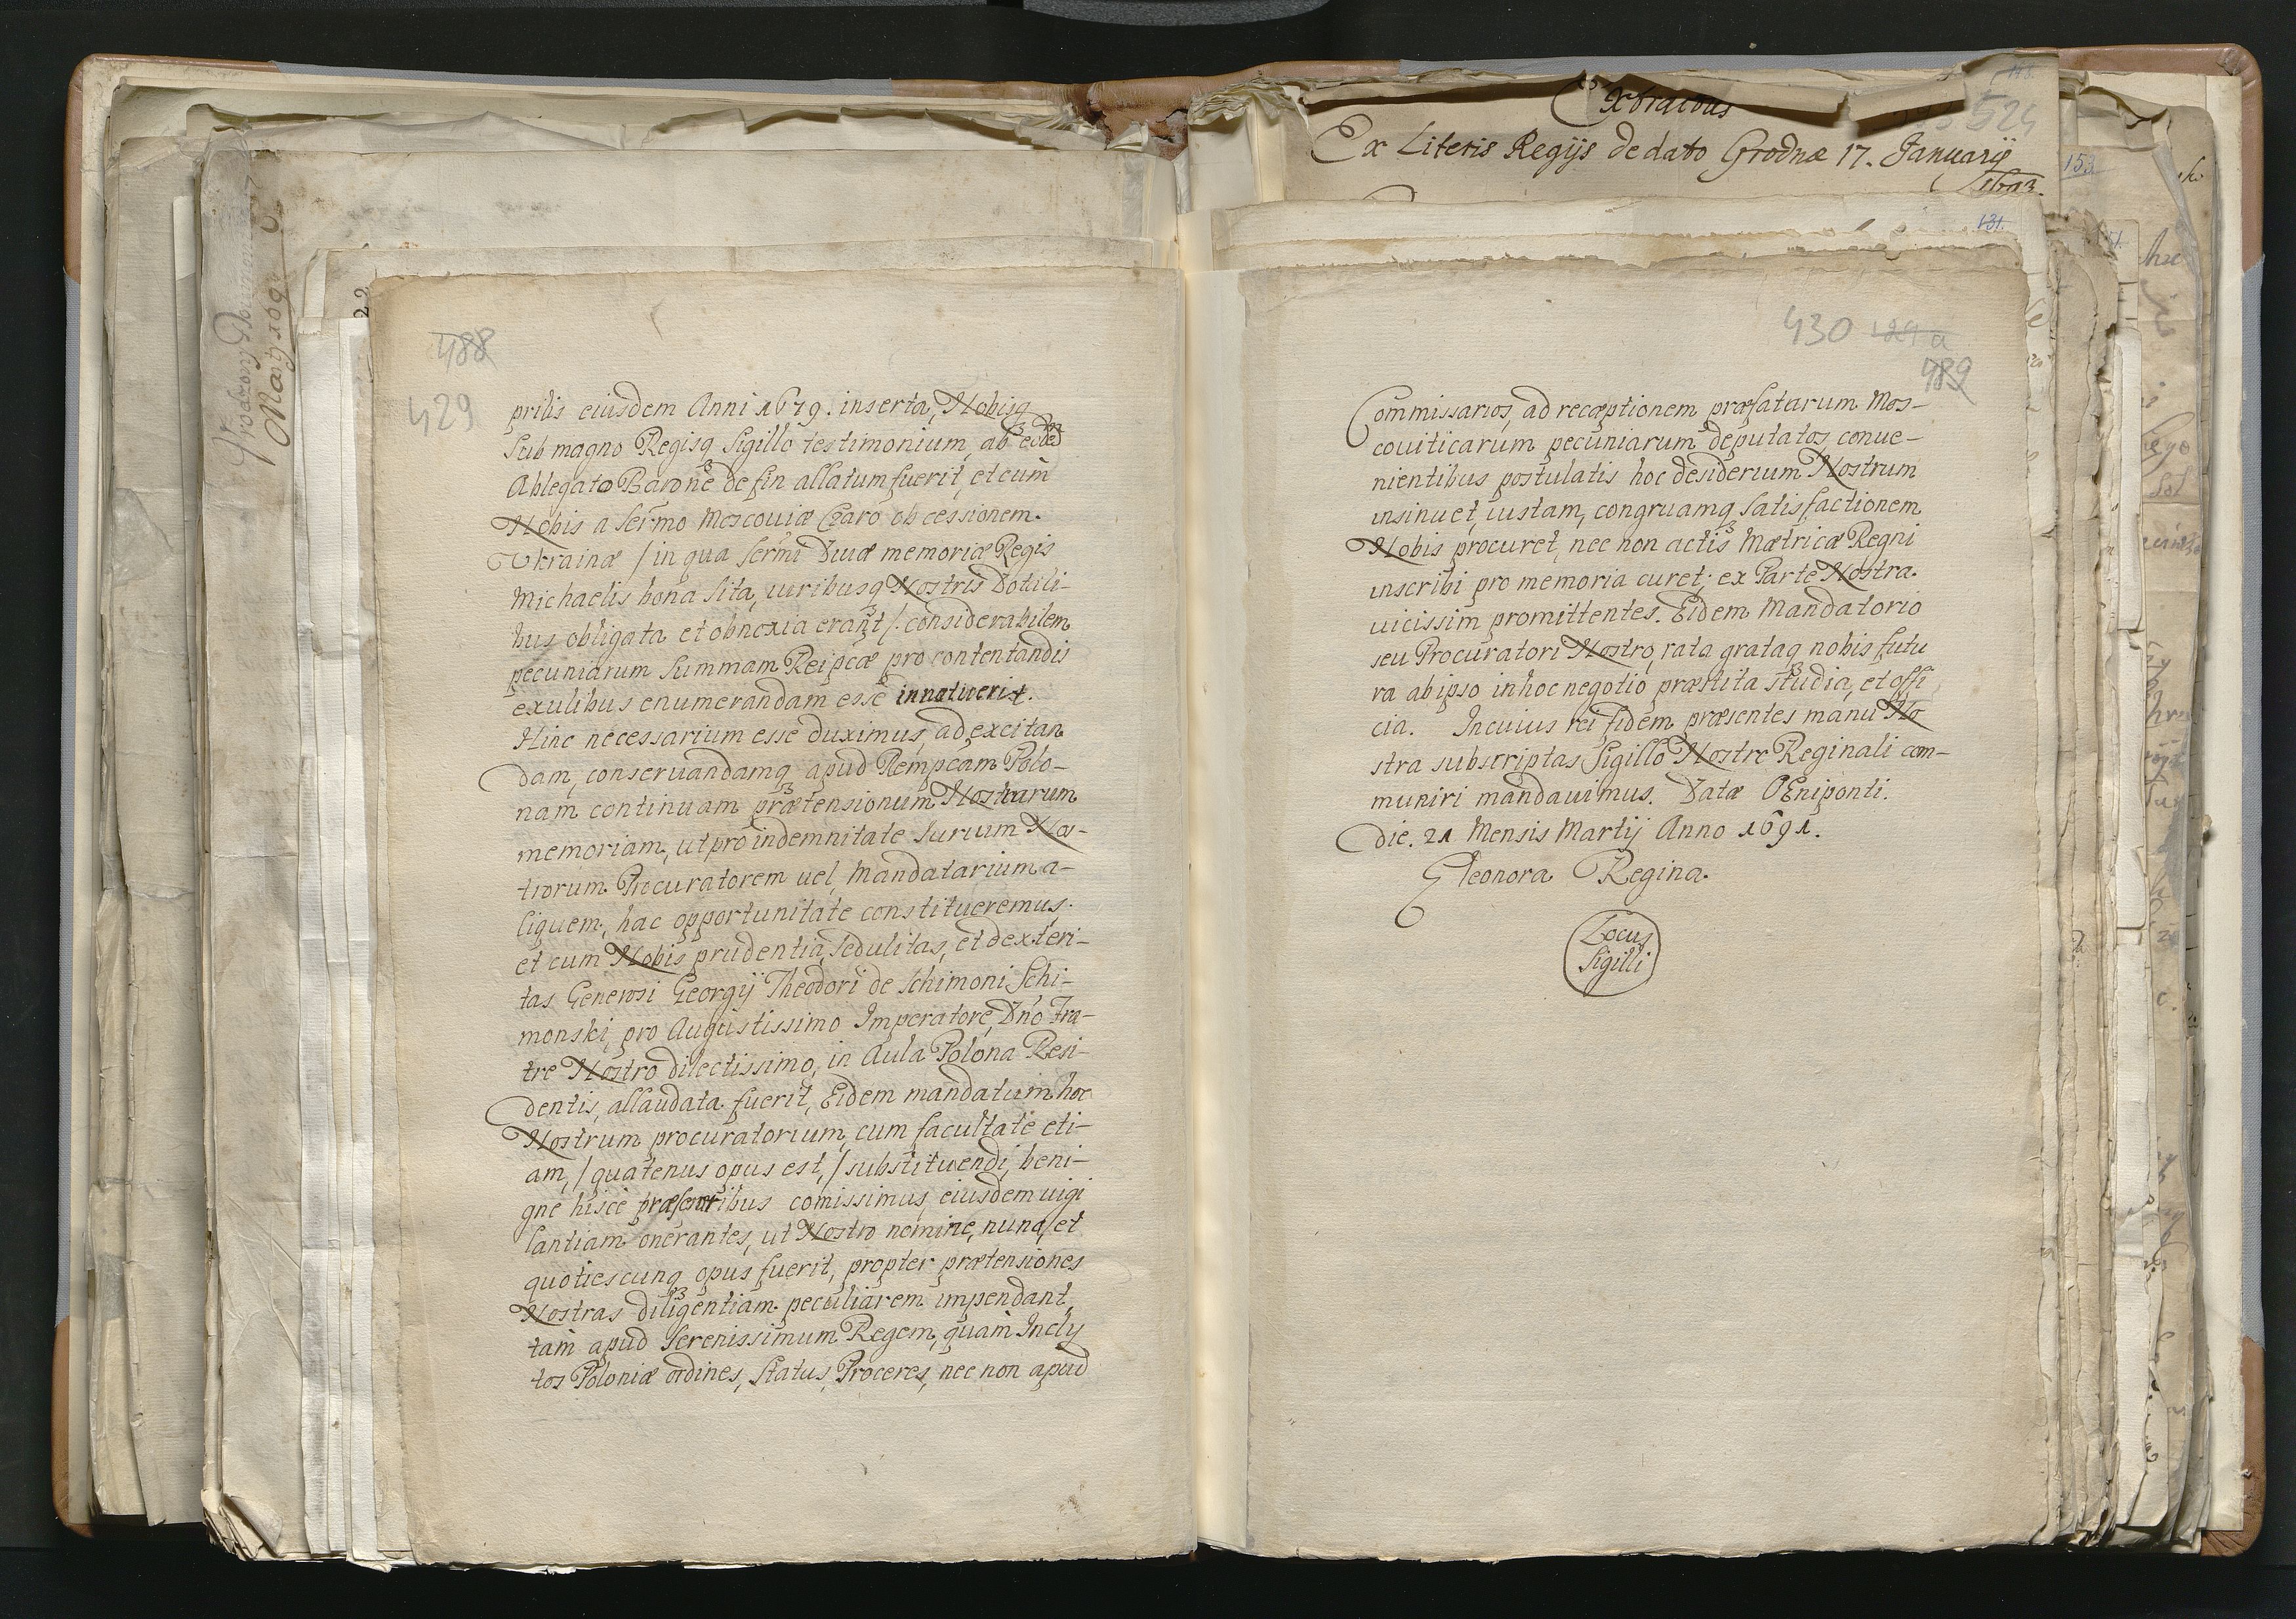 488
429
pribis eiusdem Anni 1679. inserta, Nobisq3
sub magno Regisq3 Sigillo testimonium, ab eodem
Ablegato Barone de fin allatum fuerit, et cum
Nobis a sermo Moscouiæ Czaro ob cessionem
Vkrainæ /in qua sermi Diuæ memoriæ Regis
Michaelis bona sita, iuribusq3 Nostris Dotali-
bus obligata et obnoxia erant/ considerabilem
pecuniarum summam Reipcæ pro contentandis
exulibus enumerandam esse innotuerit.
Hinc necessarium esse duximus, ad excitan
dam, conseruandamq3 apud Rempcam Polo-
nam continuam prætensionum Nostrarum
memoriam, ut pro indemnitate Iurium Nos-
trorum Procuratorem uel Mandatarium a-
liquem, hac opportunitate constitueremus.
et cum Nobis prudentia, sedulitas, et dexteri-
tas Generosi Georgij Theodori de Schimoni Schi-
monski, pro Augustissimo Imperatore, Dno Fra-
tre Nostro dilectissimo, in Aula Polona Resi-
dentis, allaudata fuerit, Eidem mandatum hoc
Nostrum procuratorium, cum facultate eti-
am, /quatenus opus est,/ substituendi, beni-
gne hisce præsentibus comissimus, eiusdem uigi
lantiam onerantes, ut Nostro nomine, nunc, et
quotiescunq3 opus fuerit, propter prætensiones
Nostras diligentiam peculiarem impendant,
tam apud Serenissimum Regem, quam Incly
tos Poloniæ ordines, Status, Proceres, nec non apud
Extractus
524
Ex Literis Regijs de dato Grodnæ 17. Januarij
153
131.
430
489
Commissarios, ad recæptionem præfatarum Mos-
couiticarum pecuniarum deputatos, conue-
nientibus postulatis hoc desiderium Nostrum
insinuet, iustam, congruamq3 satisfactionem
Nobis procuret, nec non actis Mætricæ Regni
inscribi pro memoria curet; ex Parte Nostra
uicissim promittentes. Eidem Mandatorio
seu Procuratori Nostro, rata grataq3 nobis futu
ra ab ipso in hoc negotio præstita studia, et offi
cia. In cuius rei fidem præsentes manu No
stra subscriptas Sigillo Nostro Reginali com-
muniri mandauimus. Datæ OEniponti.
die. 21 Mensis Martij Anno 1691.
Eleonora Regina.
Locus
Sigilli